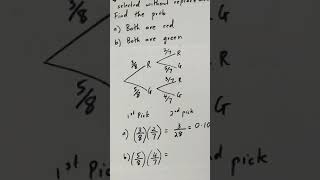 selected without replace
Find the prob
a) Both are red
b) Both are green
3/8 R 2/7 R
5/7 G
5/8 G 3/7 R
4/7 G
1st Pick 2nd pick
a) (3/8)(2/7) = 3/28 = 0.10
b) (5/8)(4/7) =